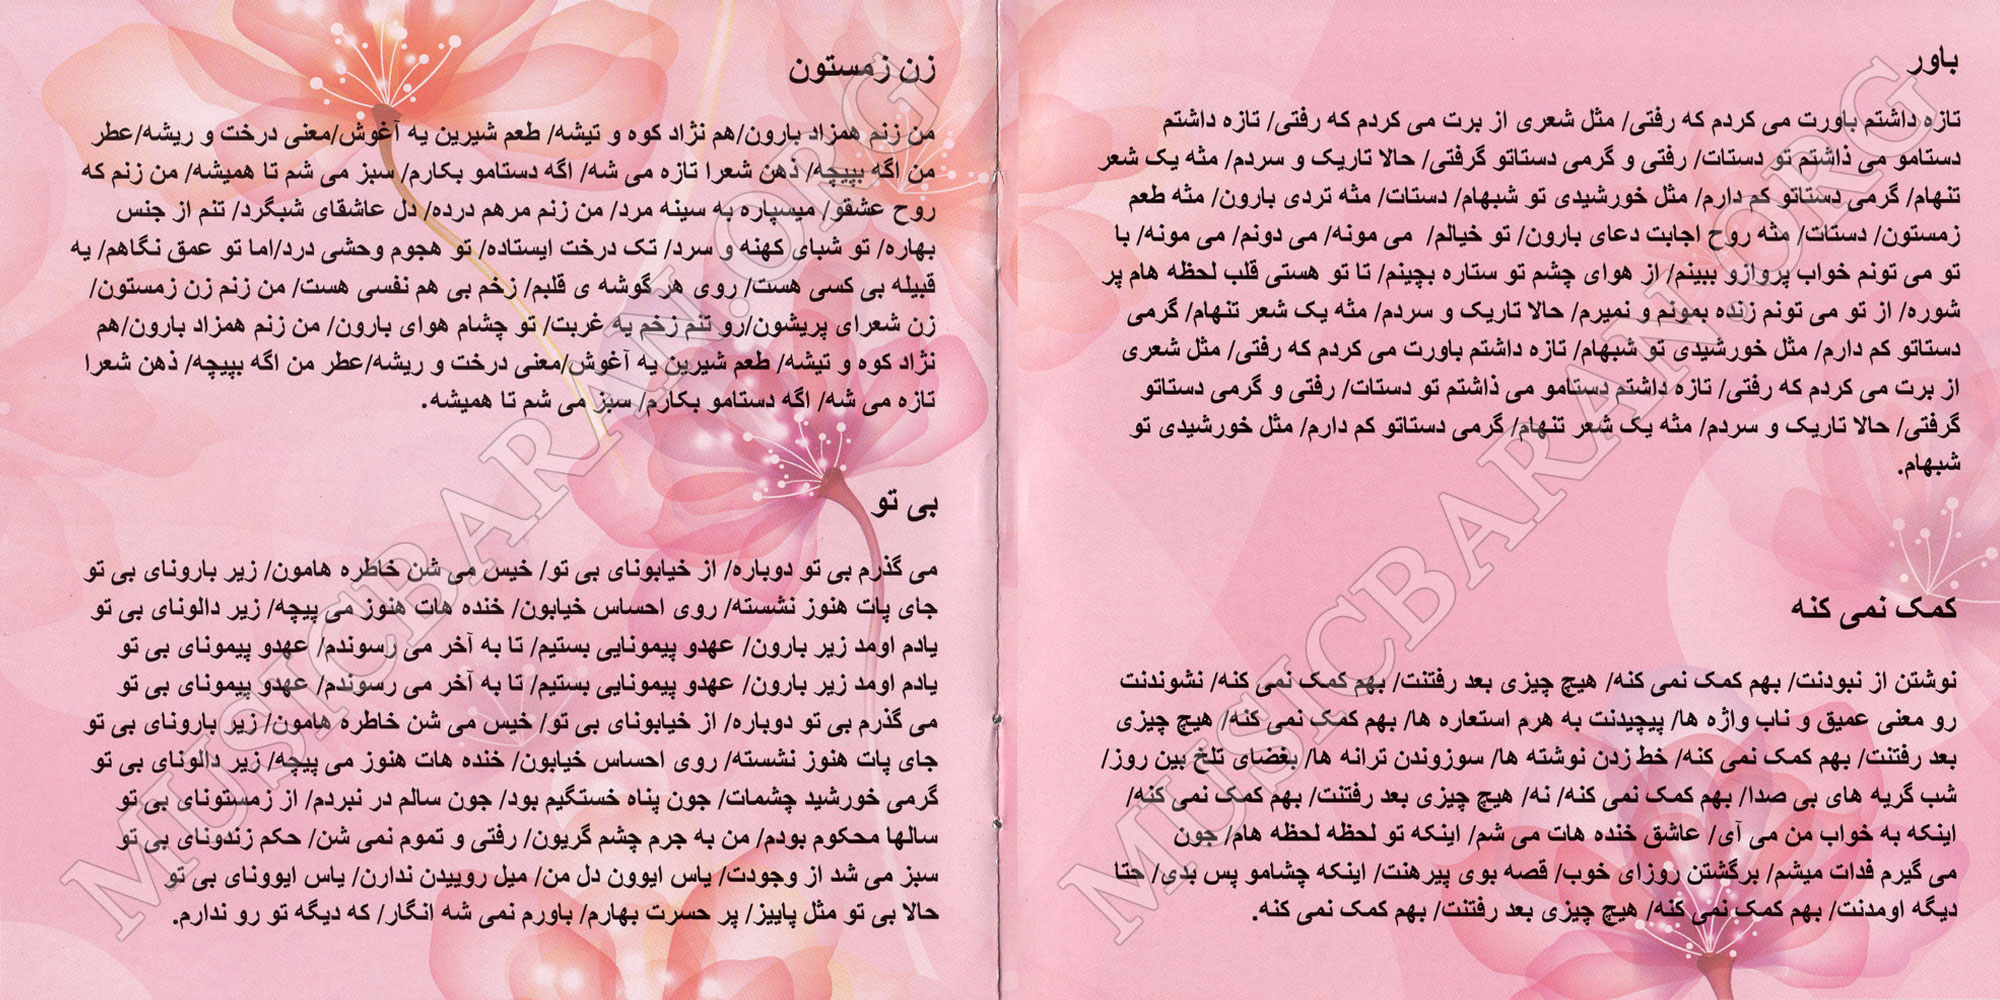 باور
تازه داشتم باورت می کردم که رفتی/ مثل شعری از برت می کردم که رفتی/ تازه داشتم
دستامو می ذاشتم تو دستات/ رفتی و گرمی دستاتو گرفتی/ حالا تاریک و سردم/ مثه یک شعر
تنهام/ گرمی دستاتو کم دارم/ مثل خورشیدی تو شبهام/ دستات/ مثه تردی بارون/ مثه طعم
زمستون/ دستات/ مثه روح اجابت دعای بارون/ تو خیالم/ می مونه/ می دونم/ می مونه/ با
تو می تونم خواب پروازو ببینم/ از هوای چشم تو ستاره بچینم/ تا تو هستی قلب لحظه هام پر
شوره/ از تو می تونم زنده بمونم و نمیرم/ حالا تاریک و سردم/ مثه یک شعر تنهام/ گرمی
دستاتو کم دارم/ مثل خورشیدی تو شبهام/ تازه داشتم باورت می کردم که رفتی/ مثل شعری
از برت می کردم که رفتی/ تازه داشتم دستامو می ذاشتم تو دستات/ رفتی و گرمی دستاتو
گرفتی/ حالا تاریک و سردم/ مثه یک شعر تنهام/ گرمی دستاتو کم دارم/ مثل خورشیدی تو
شبهام.
کمک نمی کنه
نوشتن از نبودنت/ بهم کمک نمی کنه/ هیچ چیزی بعد رفتنت/ بهم کمک نمی کنه/ نشوندنت
رو معنی عمیق و ناب واژه ها/ پیچیدنت به هرم استعاره ها/ بهم کمک نمی کنه/ هیچ چیزی
بعد رفتنت/ بهم کمک نمی کنه/ خط زدن نوشته ها/ سوزوندن ترانه ها/ بغضای تلخ بین روز/
شب گریه های بی صدا/ بهم کمک نمی کنه/ نه/ هیچ چیزی بعد رفتنت/ بهم کمک نمی کنه/
اینکه به خواب من می آی/ عاشق خنده هات می شم/ اینکه تو لحظه لحظه هام/ جون
می گیرم فدات میشم/ برگشتن روزای خوب/ قصه بوی پیرهنت/ اینکه چشامو پس بدی/ حتا
دیگه اومدنت/ بهم کمک نمی کنه/ هیچ چیزی بعد رفتنت/ بهم کمک نمی کنه.
زن زمستون
من زنم همزاد بارون/هم نژاد کوه و تیشه/ طعم شیرین یه آغوش/معنی درخت و ریشه/عطر
من اگه بپیچه/ ذهن شعرا تازه می شه/ اگه دستامو بکارم/ سبز می شم تا همیشه/ من زنم که
روح عشقو/ میسپاره به سینه مرد/ من زنم مرهم درده/ دل عاشقای شبگرد/ تنم از جنس
بهاره/ تو شبای کهنه و سرد/ تک درخت ایستاده/ تو هجوم وحشی درد/اما تو عمق نگاهم/ یه
قبیله بی کسی هست/ روی هر گوشه ی قلبم/ زخم بی هم نفسی هست/ من زنم زن زمستون/
زن شعرای پریشون/رو تنم زخم یه غربت/ تو چشام هوای بارون/ من زنم همزاد بارون/هم
نژاد کوه و تیشه/ طعم شیرین یه آغوش/معنی درخت و ریشه/عطر من اگه بپیچه/ ذهن شعرا
تازه می شه/ اگه دستامو بکارم/ سبز می شم تا همیشه.
بی تو
می گذرم بی تو دوباره/ از خیابونای بی تو/ خیس می شن خاطره هامون/ زیر بارونای بی تو
جای پات هنوز نشسته/ روی احساس خیابون/ خنده هات هنوز می پیچه/ زیر دالونای بی تو
یادم اومد زیر بارون/ عهدو پیمونایی بستیم/ تا به آخر می رسوندم/ عهدو پیمونای بی تو
یادم اومد زیر بارون/ عهدو پیمونایی بستیم/ تا به آخر می رسوندم/ عهدو پیمونای بی تو
می گذرم بی تو دوباره/ از خیابونای بی تو/ خیس می شن خاطره هامون/ زیر بارونای بی تو
جای پات هنوز نشسته/ روی احساس خیابون/ خنده هات هنوز می پیچه/ زیر دالونای بی تو
گرمی خورشید چشمات/ جون پناه خستگیم بود/ جون سالم در نبردم/ از زمستونای بی تو
سالها محکوم بودم/ من به جرم چشم گریون/ رفتی و تموم نمی شن/ حکم زندونای بی تو
سبز می شد از وجودت/ یاس ایوون دل من/ میل روییدن ندارن/ یاس ایوونای بی تو
حالا بی تو مثل پاییز/ پر حسرت بهارم/ باورم نمی شه انگار/ که دیگه تو رو ندارم.
MUSICBARAN.ORG
MUSICBARAN.ORG